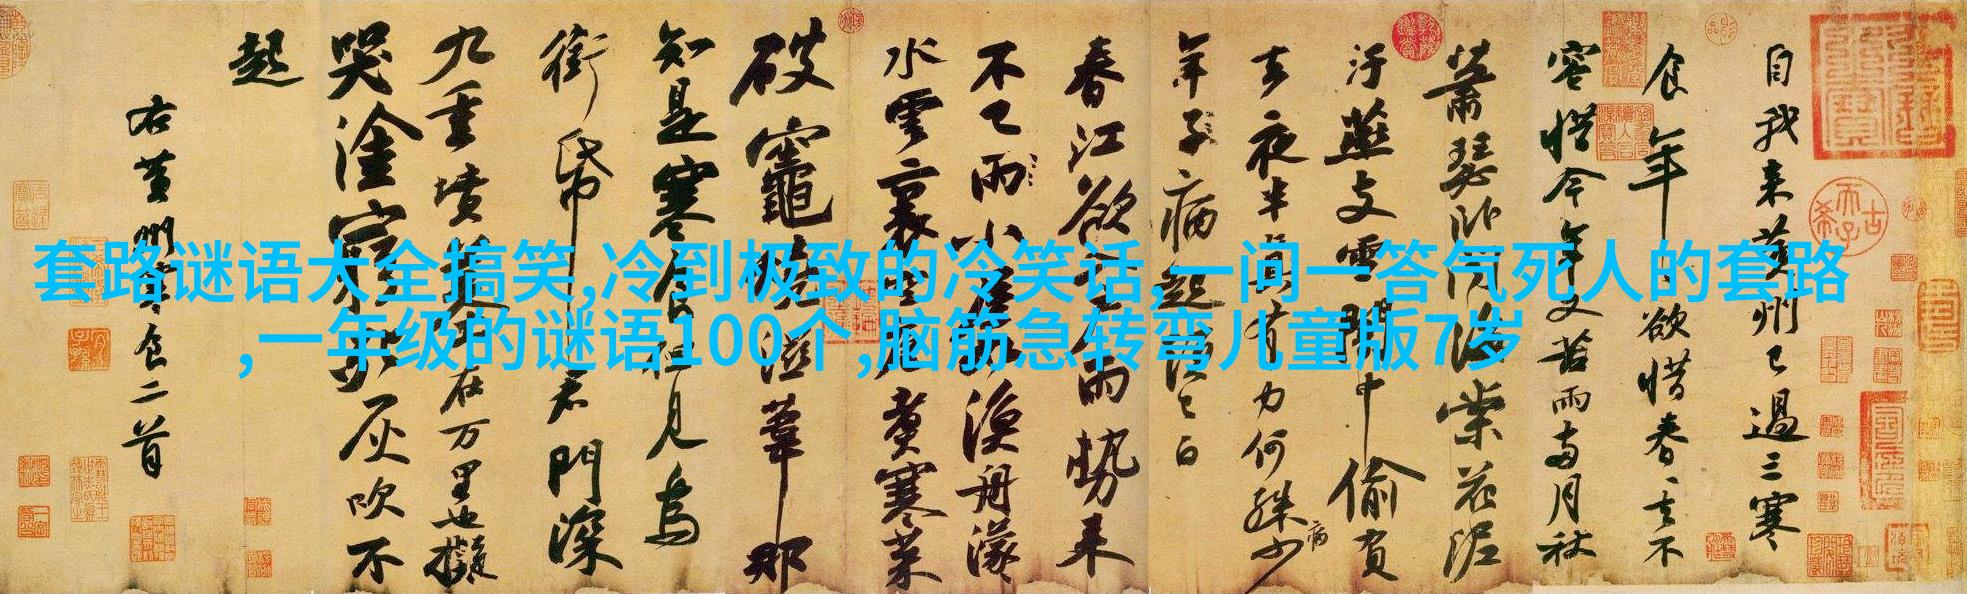 套路谜语大全搞笑,冷到极致的冷笑话,一问一答气死人的套路
,一年级的谜语100个,脑筋急转弯儿童版7岁
自我来黄州已過三寒
食年々欲惜春々去不
容惜今年又苦雨兩月秋
蕭瑟卧聞海棠花泥
汙燕支雪闇中偷負
去夜半真有力何殊少
年子病起須已白
病
春江欲入戶雨勢来
不已雨小屋如漁舟濛々
水雲裏空庖煮寒菜
破竈燒濕葦那
知是寒食但見烏
銜帋君門深
九重墳墓在万里也擬
哭塗窮死灰吹不
起
右黄州寒食二首